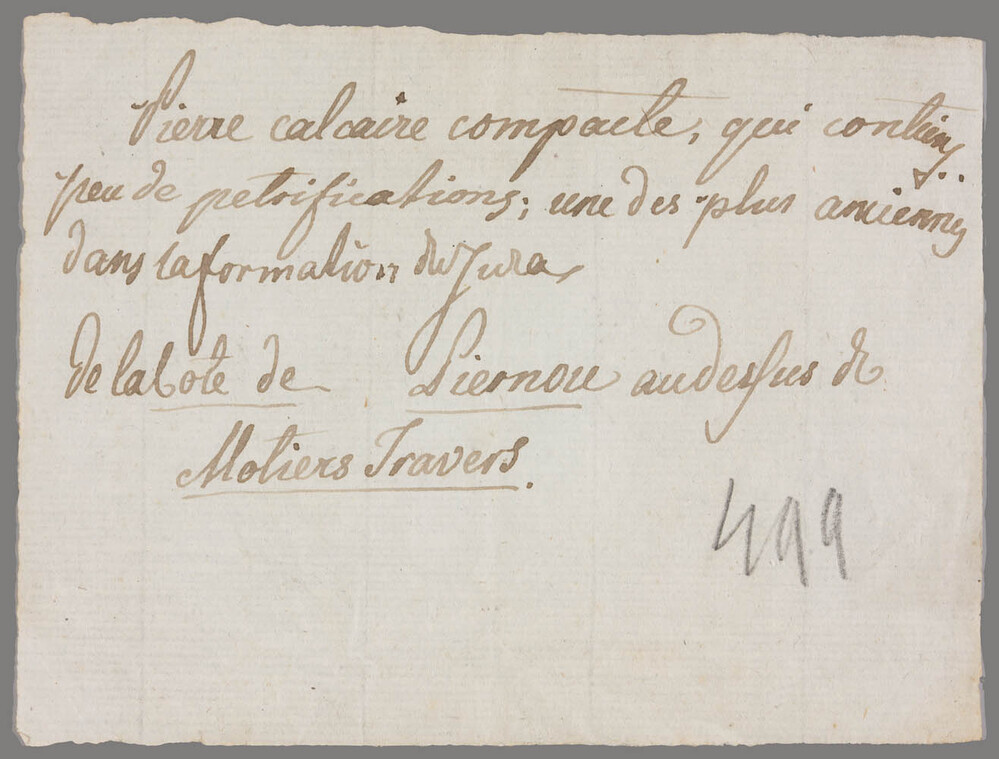 Pierre calcaire compacte, qui contient
peu de petrifications; une des plus anciennes
dans la formation du Jura
de la Cote de Piernou au dessus de
Motiers Travers.
499